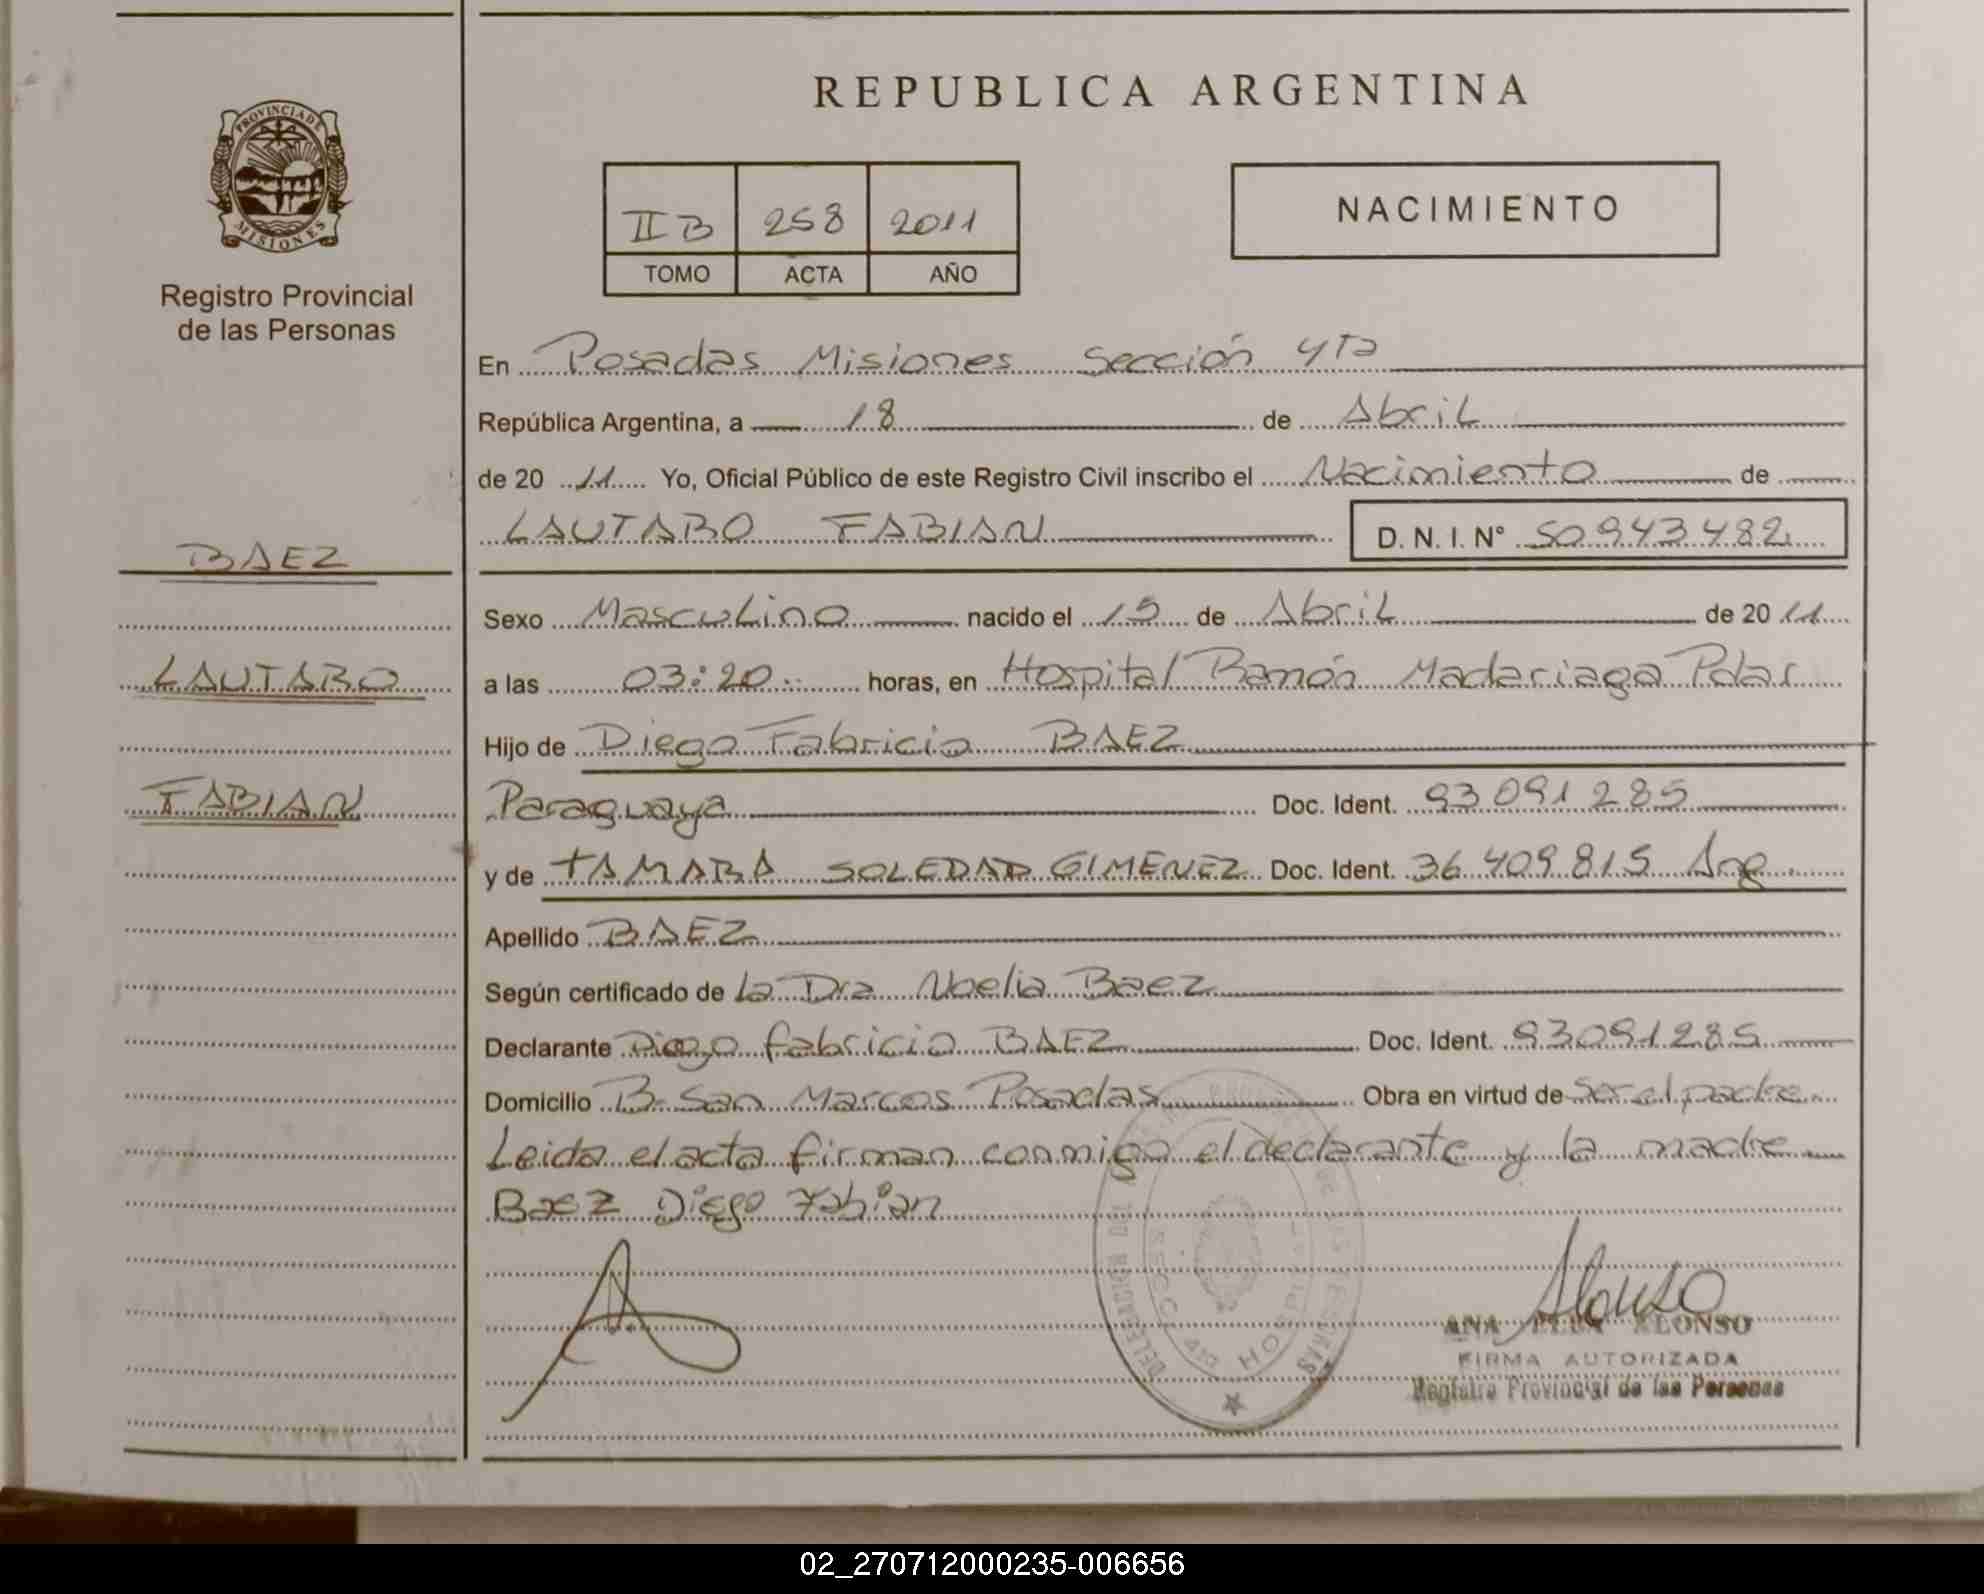 REPUBLICA ARGENTINA
PROVINCIA DE MISIONES
Registro Provincial
de las Personas
II B 258 2011
TOMO ACTA AÑO
NACIMIENTO
En Posadas Misiones Sección 4ta
República Argentina, a 18 de Abril
de 20 11 Yo, Oficial Público de este Registro Civil inscribo el Nacimiento de
LAUTARO FABIAN D. N. I. N° 50943482
BAEZ
LAUTARO
FABIAN
Sexo Masculino nacido el 15 de Abril de 20 11
a las 03:20 horas, en Hospital Ramón Madariaga Pdas
Hijo de Diego Fabricio BAEZ
Paraguaya Doc. Ident. 93 091 285
y de TAMARA SOLEDAD GIMENEZ Doc. Ident. 36 409 815 Arg
Apellido BAEZ
Según certificado de La Dra Noelia Baez
Declarante Diego fabricio BAEZ Doc. Ident. 93091285
Domicilio B- San Marcos Posadas Obra en virtud de Ser el padre
Leida el acta firman conmigo el declarante y la madre
Baez Diego Fabian
Alonso
ANA ALONSO
FIRMA AUTORIZADA
Registro Provincial de las Personas
DELEGACION DE LAS PERSONAS
SECC 4ta HOSPITAL
02_270712000235-006656